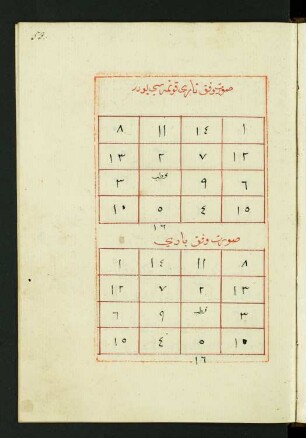 صورت وفق ناري قونمه سي بودر
١ ١٤ ١١ ٨
١٢ ٧ ٢ ١٣
٦ ٩ قطب ٣
١٥ ٤ ٥ ١٠
١٦
صورت وفق بادي
٨ ١١ ١٤ ١
١٣ ٢ ٧ ١٢
٣ قطب ٩ ٦
١٠ ٥ ٤ ١٥
١٦